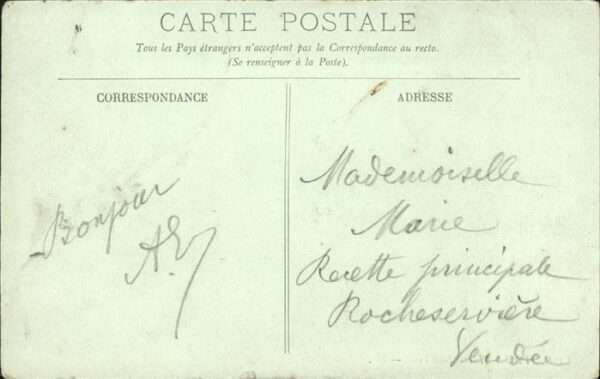 CARTE POSTALE
Tous les Pays étrangers n'acceptent pas la Correspondance au recto.
(Se renseigner à la Poste).
CORRESPONDANCE
ADRESSE
Bonjour
Mademoiselle
Marie
Recette principale
Rocheservière
Vendée